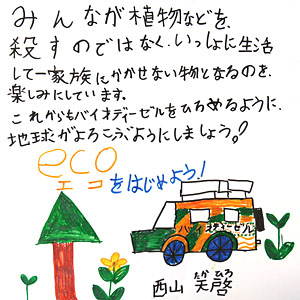 みんなが植物などを、
殺すのではなく、いっしょに生活
して一家族にかかせない物となるのを、
楽しみにしています。
これからもバイオディーゼルをひろめるように、
地球がよろこぶようにしましょう!
eco
エコをはじめよう!
バイオディーゼル
たか ひろ
西山 天啓